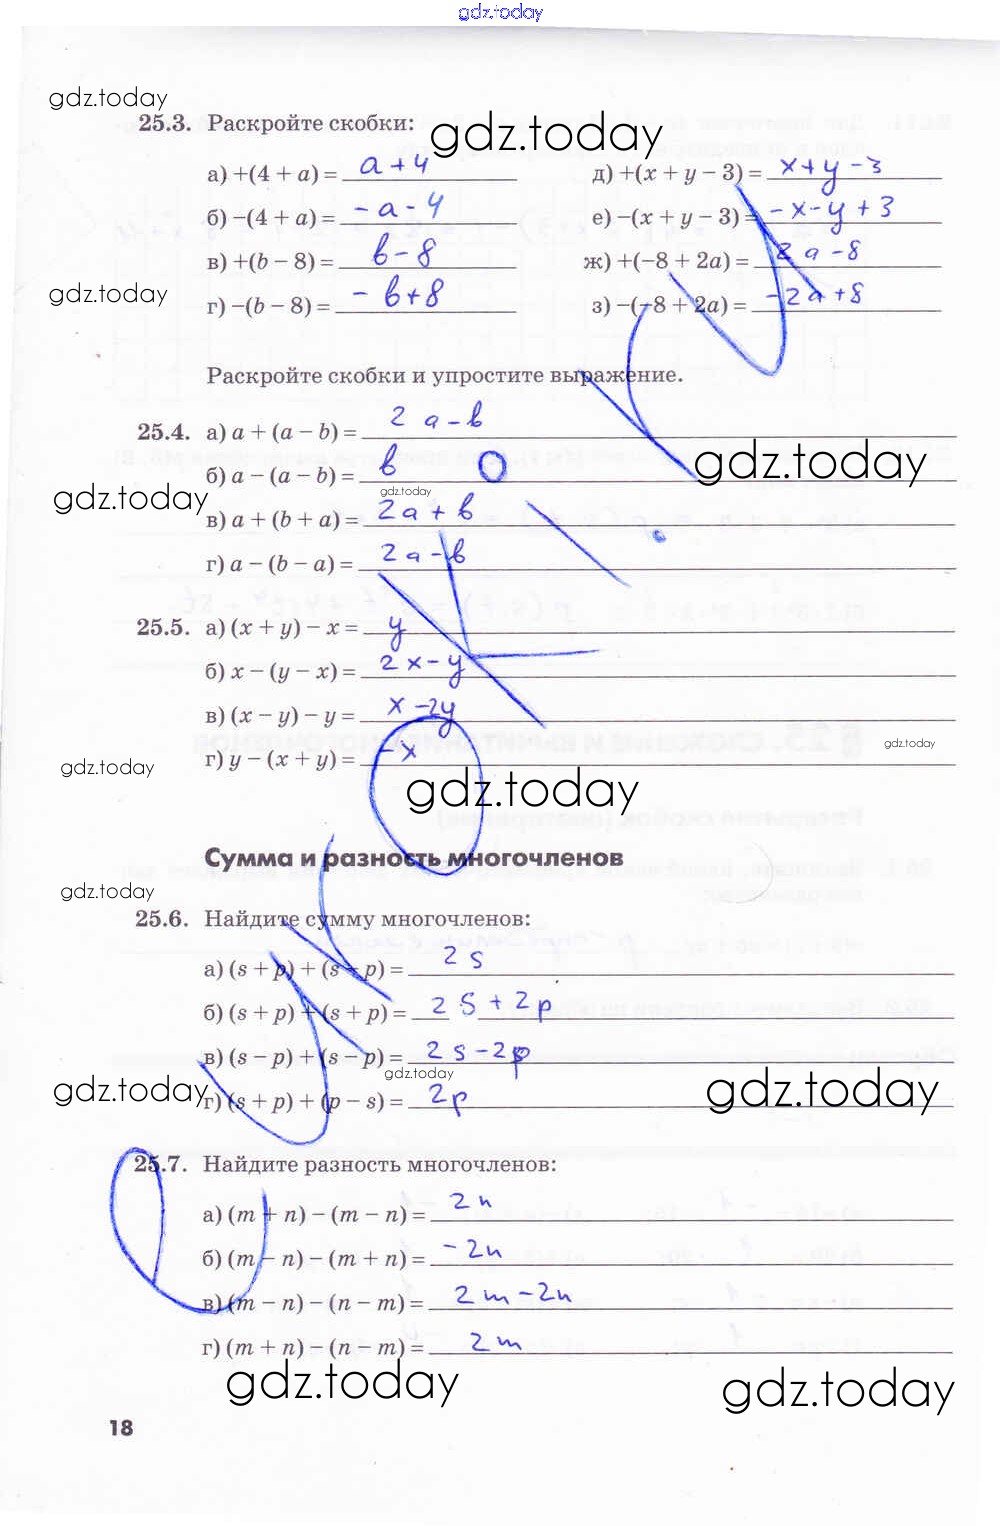 gdz.today
gdz.today
25.3. Раскройте скобки: gdz.today
а) +(4 + a) = a + 4
д) +(x + y − 3) = x + y − 3
б) −(4 + a) = − a − 4
е) −(x + y − 3) = − x − y + 3
в) +(b − 8) = b − 8
ж) +(−8 + 2a) = 2a − 8
gdz.today
г) −(b − 8) = − b + 8
з) −(−8 + 2a) = −2a + 8
Раскройте скобки и упростите выражение.
25.4. а) a + (a − b) = 2a − b
gdz.today
б) a − (a − b) = b
gdz.today
gdz.today
в) a + (b + a) = 2a + b
г) a − (b − a) = 2a − b
25.5. а) (x + y) − x = y
б) x − (y − x) = 2x − y
в) (x − y) − y = x − 2y
gdz.today
г) y − (x + y) = − x
gdz.today
gdz.today
Сумма и разность многочленов
gdz.today
25.6. Найдите сумму многочленов:
а) (s + p) + (s − p) = 2s
б) (s + p) + (s + p) = 2s + 2p
в) (s − p) + (s − p) = 2s − 2p
gdz.today
gdz.today
gdz.today
г) (s + p) + (p − s) = 2p
25.7. Найдите разность многочленов:
а) (m + n) − (m − n) = 2n
б) (m − n) − (m + n) = −2n
в) (m − n) − (n − m) = 2m − 2n
г) (m + n) − (n − m) = 2m
gdz.today
gdz.today
18